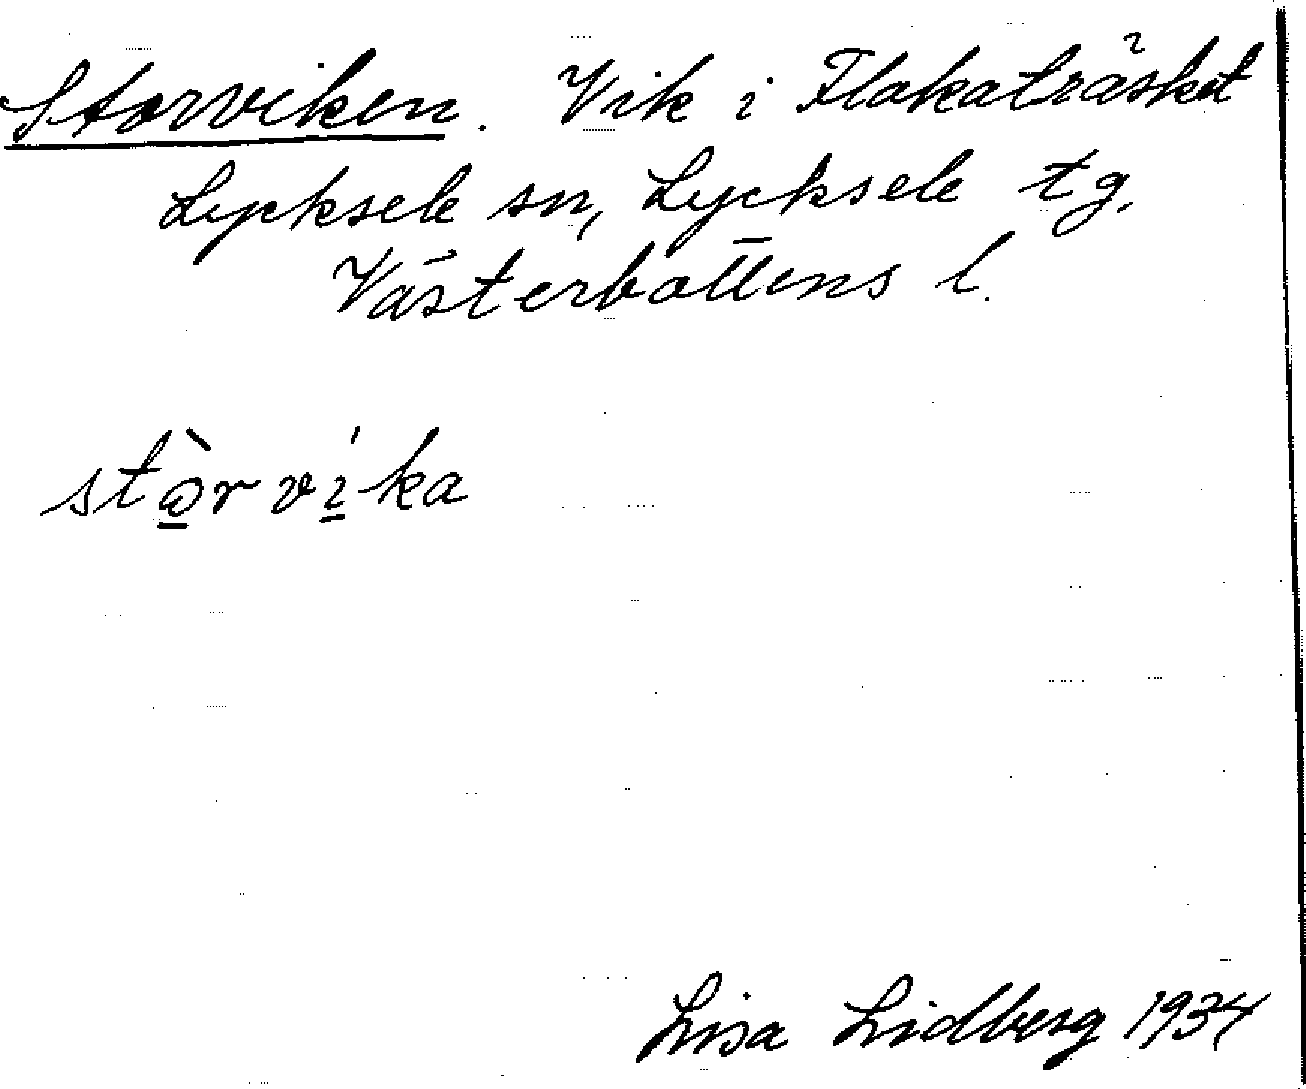 Storviken. Vik i Flakaträsket
Lycksele sn, Lycksele tg,
Västerbottens l.
stòrvíka
Lisa Lidberg 1934